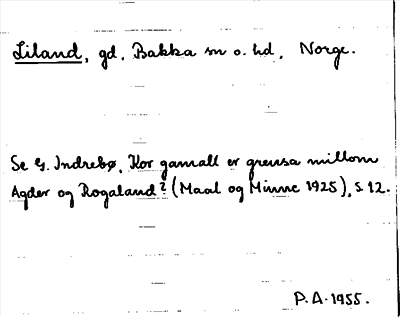 Liland, gd. Bakka sn o. hd, Norge.
Se G. Indrebø, Kor gamalt er grensa millom
Agder og Rogaland? (Maal og Minne 1925), s 12.
P.A. 1955.